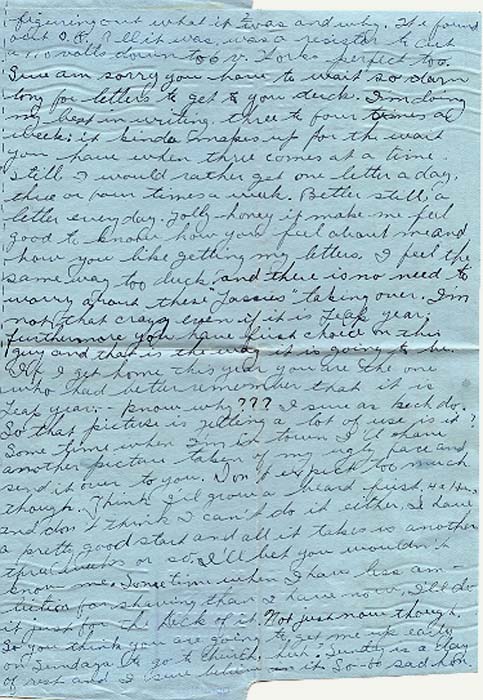 figuring out what it was and why. He found
out O.K. All it was, was a resister to cut
a 110 volts down to 6 v. Works perfect too.
Sure am sorry you have to wait so darn
long for letters to get to you duck. I'm doing
my best in writing three to four times a
week; it kinda makes up for the wait
you have when three comes at a time
still I would rather get one letter a day,
three or four times a week. Better still, a
letter every day. Golly-honey it make me feel
good to know how you feel about me and
how you like getting my letters. I feel the
same way too duck, and there is no need to
worry about these "Jassies" taking over. I'm
not that crazy even if it is Leap year;
furthermore you have first choice on this
guy and that is the way it is going to be.
If I get home this year you are the one
who had better remember that it is
Leap year. -- Know why??? I sure as heck do.
So that picture is getting a lot of use, is it?
Some time when I'm in town I'll have
another picture taken of my ugly face and
send it over to you. Don't expect too much
though. Think I'll grow a beard first, Ha Ha,
and don't think I can't do it either. I have
a pretty good start and all it takes is another
three weeks or so. I'll bet you wouldn't
know me. Sometime when I have less am-
bition for shaving than I have now, I'll do
it just for the heck of it. Not just now though.
So you think you are going to get me up early
on Sundays to go to church, huh? Sunday is a day
of rest and I sure believe in it. So-so sad hon.